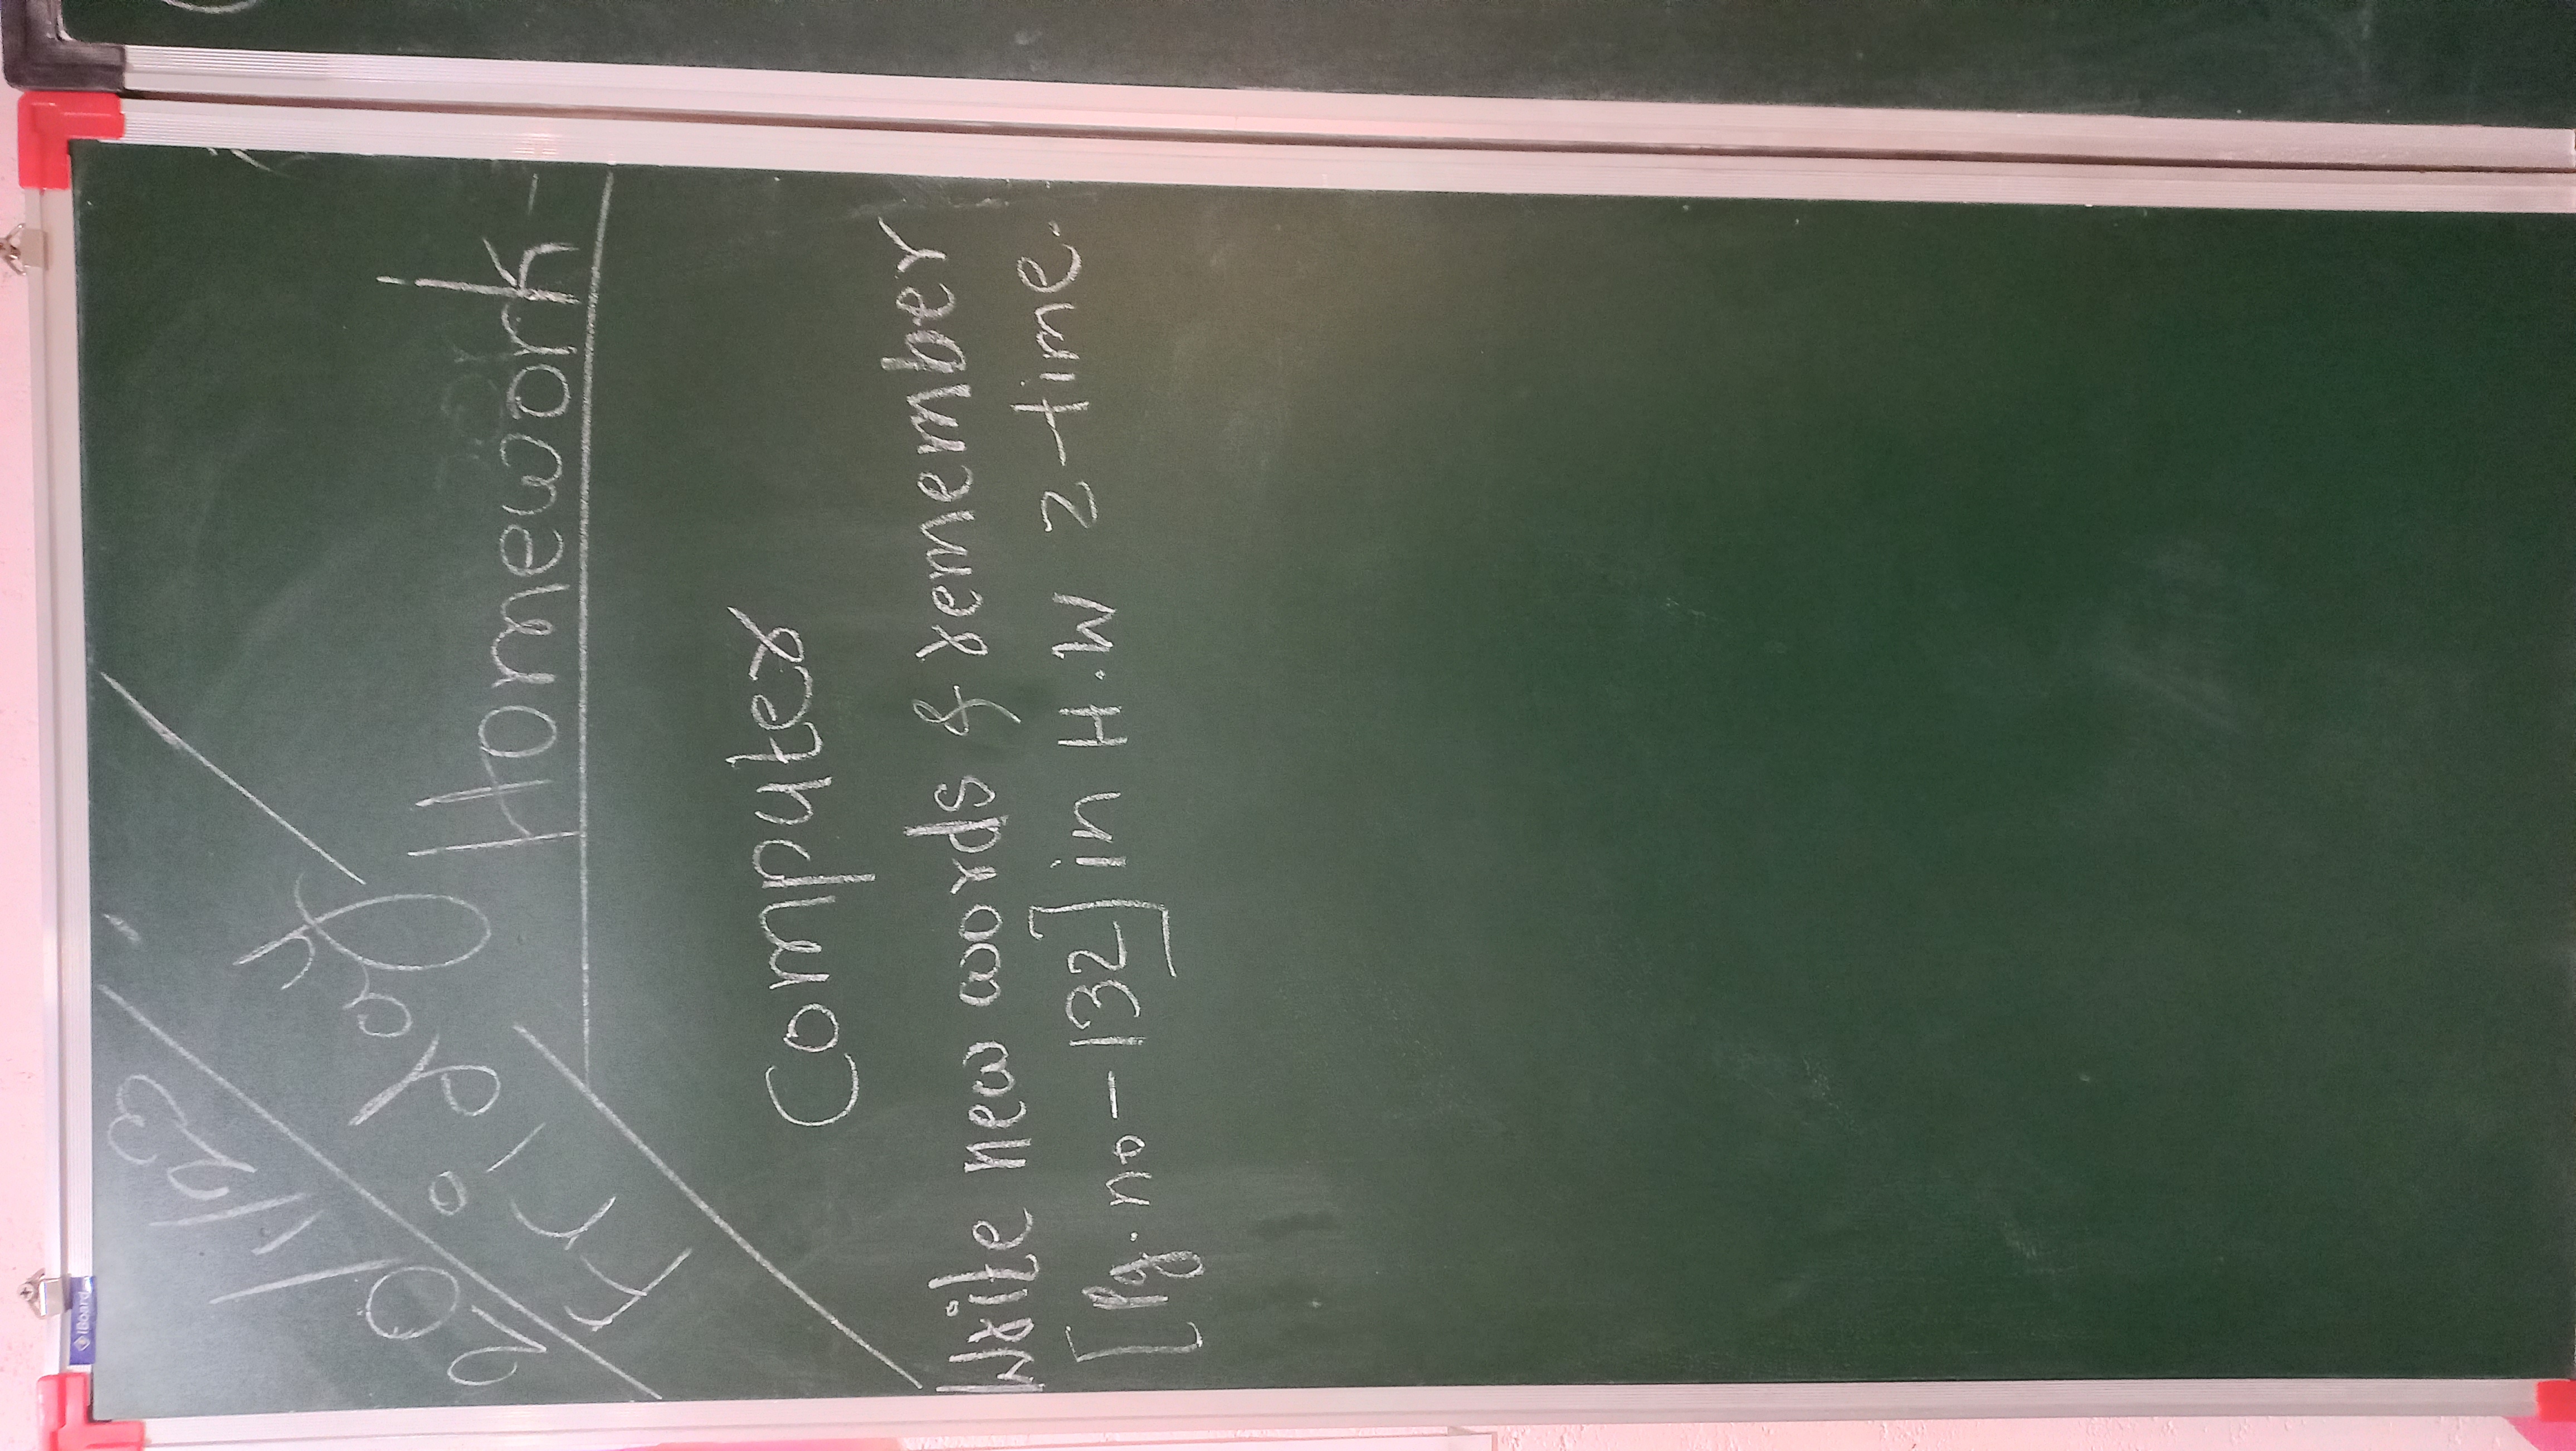 20/1/23
Friday
Homework-
Computer
Write new words & remember
[Pg. no - 132] in H.W 2-time.
iBoard